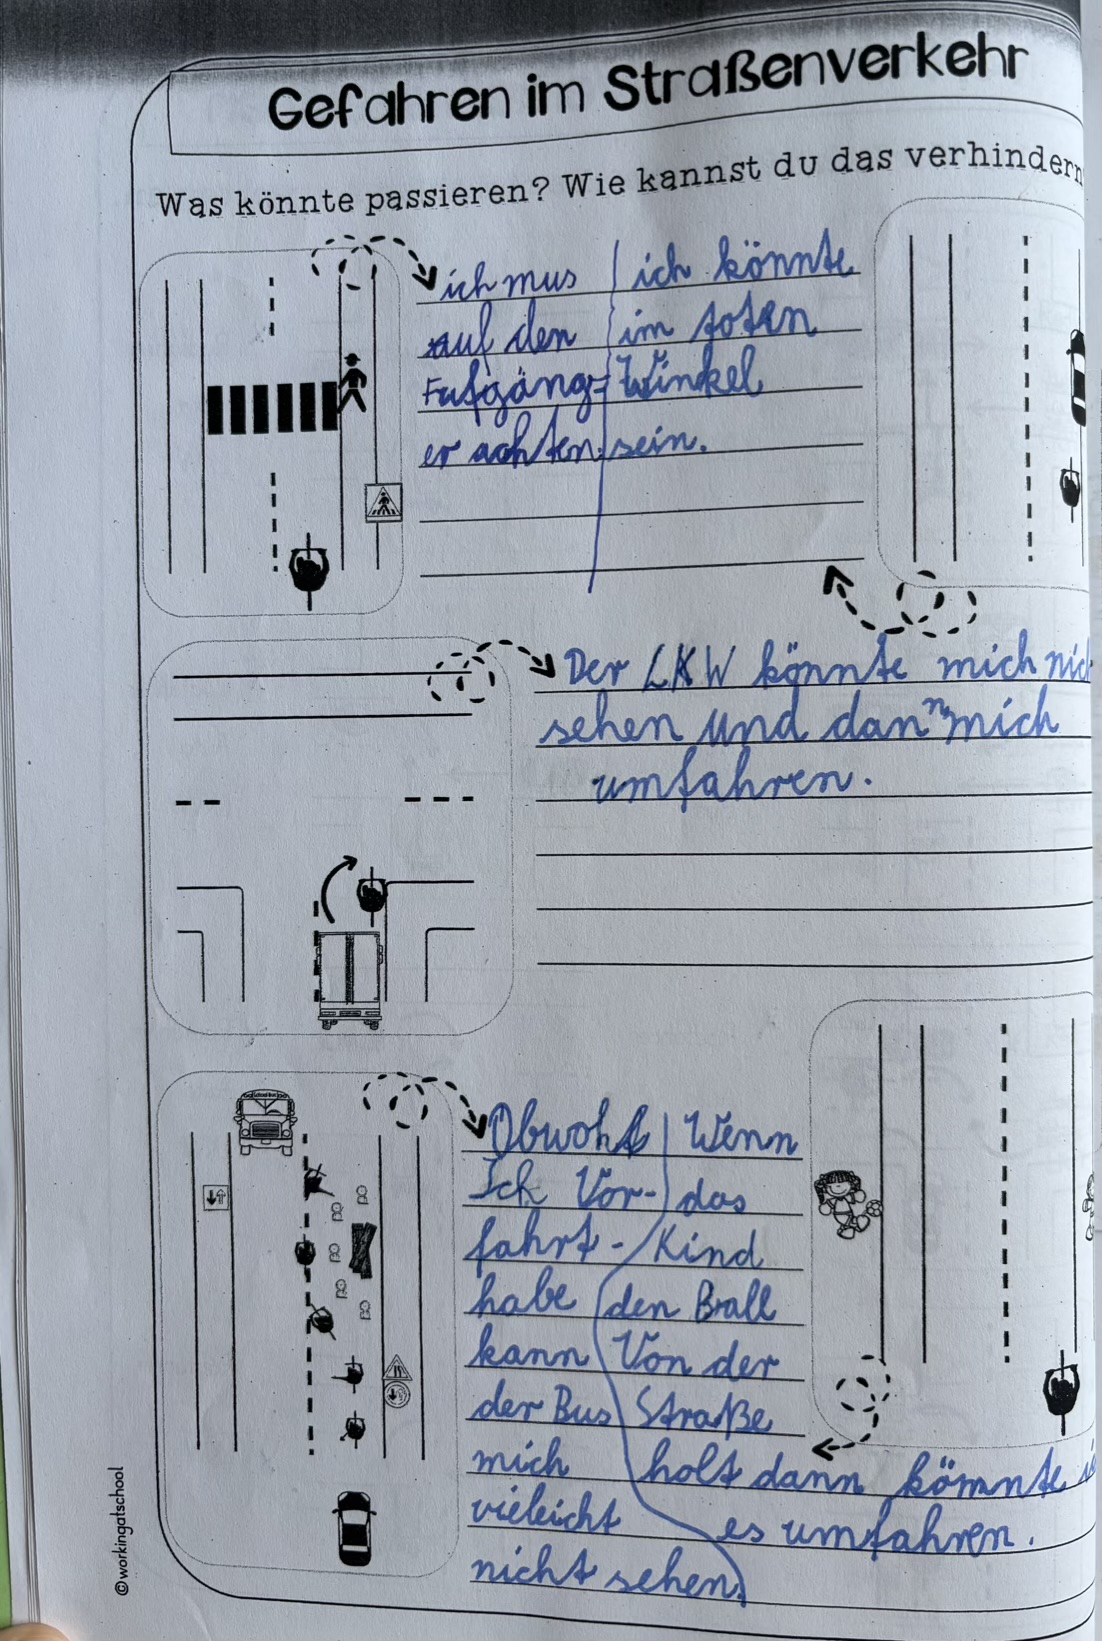 Gefahren im Straßenverkehr
Was könnte passieren? Wie kannst du das verhindern
ich mus
auf den
Fußgäng-
er achten.
ich könnte
im toten
Winkel
sein.
Der LKW könnte mich nic
sehen und dann mich
umfahren.
School Bus
Obwohl
Ich Vor-
fahrt-
habe
kann
der Bus
mich
vieleicht
nicht sehen.
Wenn
das
Kind
den Ball
Von der
Straße
holt dann könnte
es umfahren.
©workingatschool